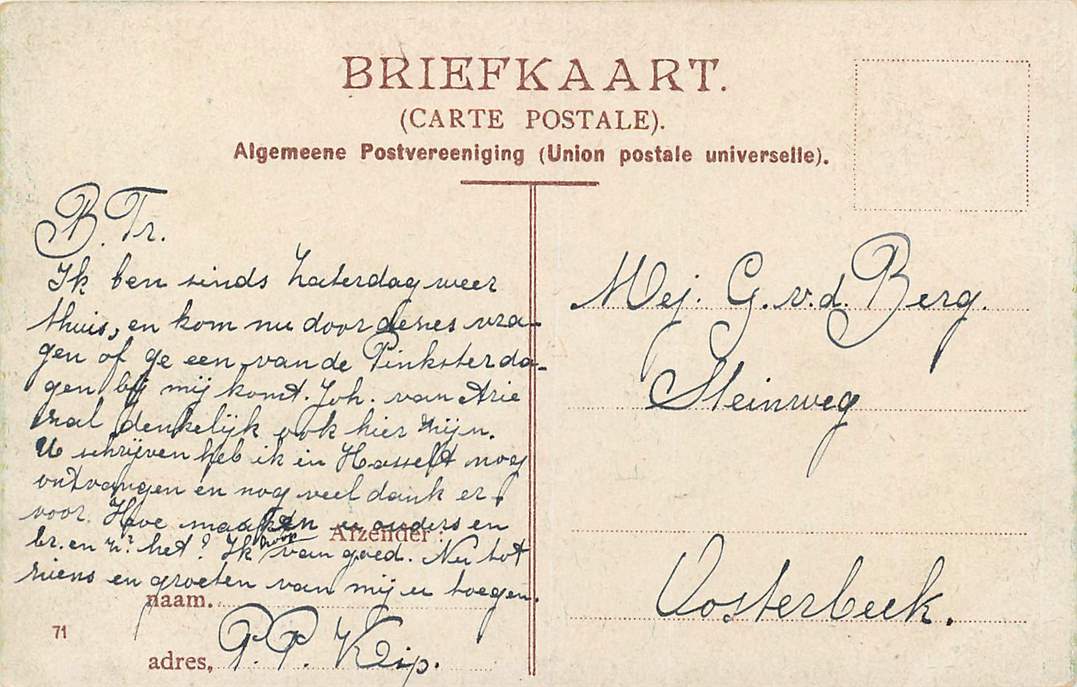 BRIEFKAART.
(CARTE POSTALE).
Algemeene Postvereeniging (Union postale universelle).
B. Tr.
Ik ben sinds Zaterdag weer
thuis, en kom nu door deses vra-
gen of ge een van de Pinksterda-
gen bij mij komt. Joh. van Arie
zal denkelijk ook hier zijn.
U schrijven heb ik in Hasselt nog
ontvangen en nog veel dank er
voor. Hoe maakten u ouders en
br. en z? het? Ik hoop van goed. Nu tot
ziens en groeten van mij u toegen.
P. P. Kip.
Afzender:
naam.
adres,
71
Mej. G. v. d. Berg.
Steinweg
Oosterbeek.